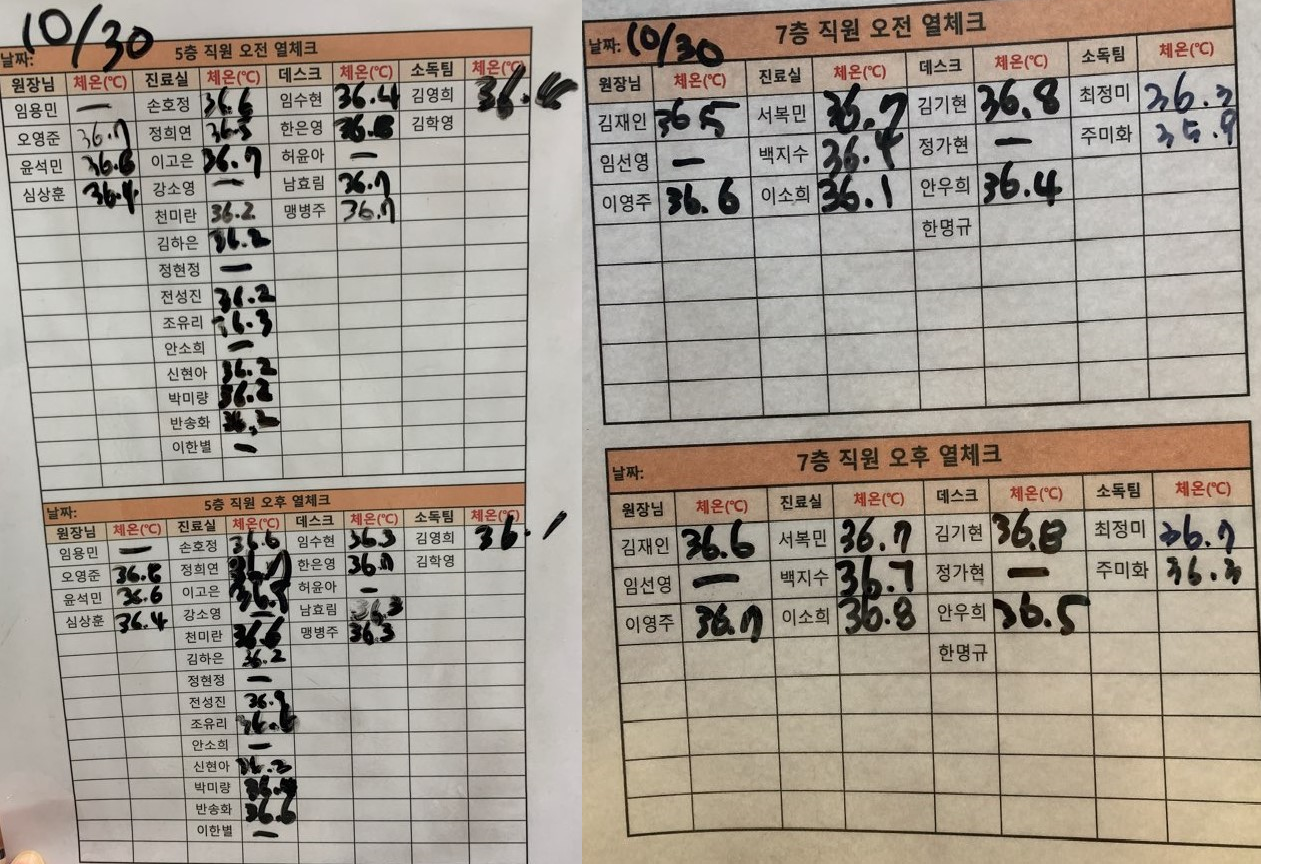 10/30
날짜: 5층 직원 오전 열체크
원장님 체온(℃) 진료실 체온(℃) 데스크 체온(℃) 소독팀 체온(℃)
임용민 — 손호정 36.6 임수현 36.4 김영희
오영준 36.7 정희연 36.5 한은영 36.8 김학영
윤석민 36.6 이고은 36.7 허윤아 —
심상훈 36.4 강소영 — 남효림 36.7
천미란 36.2 맹병주 36.7
김하은 36.2
정현정 —
전성진 36.2
조유리 36.3
안소희 —
신현아 36.2
박미량 36.2
반송화 36.2
이한별 —
날짜: 5층 직원 오후 열체크
원장님 체온(℃) 진료실 체온(℃) 데스크 체온(℃) 소독팀 체온(℃)
임용민 — 손호정 36.6 임수현 36.3 김영희 36.1
오영준 정희연 한은영 36.7 김학영
윤석민 36.6 이고은 허윤아 —
심상훈 36.4 강소영 — 남효림 36.3
천미란 36.6 맹병주 36.3
김하은 36.2
정현정 —
전성진
조유리
안소희 —
신현아
박미량
반송화 36.6
이한별 —
날짜: 10/30 7층 직원 오전 열체크
원장님 체온(℃) 진료실 체온(℃) 데스크 체온(℃) 소독팀 체온(℃)
김재인 36.5 서복민 36.7 김기현 36.8 최정미 36.3
임선영 — 백지수 36.4 정가현 — 주미화 35.9
이영주 36.6 이소희 36.1 안우희 36.4
한명규
날짜: 7층 직원 오후 열체크
원장님 체온(℃) 진료실 체온(℃) 데스크 체온(℃) 소독팀 체온(℃)
김재인 36.6 서복민 36.7 김기현 36.8 최정미 36.7
임선영 — 백지수 36.7 정가현 — 주미화 36.3
이영주 36.7 이소희 36.8 안우희 36.5
한명규